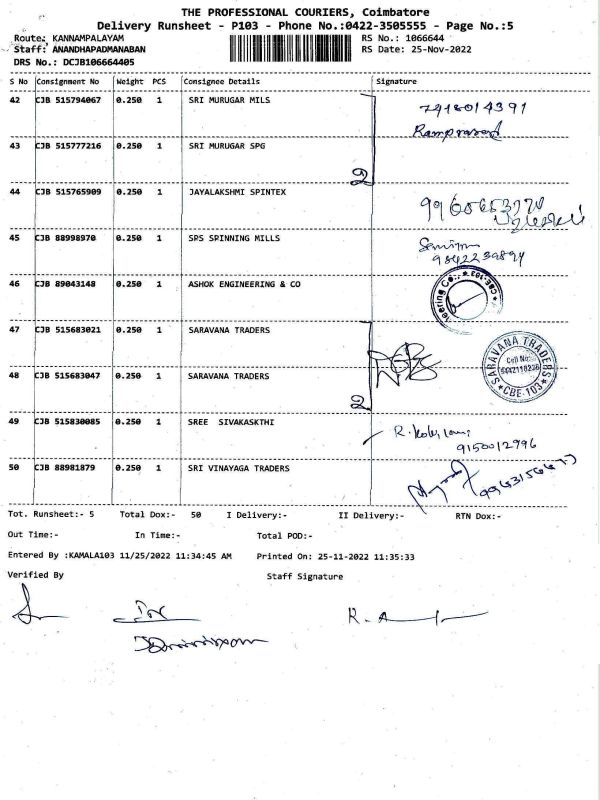 THE PROFESSIONAL COURIERS, Coimbatore
Delivery Runsheet - P103 - Phone No.:0422-3505555 - Page No.:5
Route: KANNAMPALAYAM RS No.: 1066644
Staff: ANANDHAPADMANABAN RS Date: 25-Nov-2022
DRS No.: DCJB106664405
S No Consignment No Weight PCS Consignee Details Signature
42 CJB 515794067 0.250 1 SRI MURUGAR MILS 7418014391
Ramprasad
43 CJB 515777216 0.250 1 SRI MURUGAR SPG
2
44 CJB 515765909 0.250 1 JAYALAKSHMI SPINTEX
45 CJB 88998970 0.250 1 SPS SPINNING MILLS
46 CJB 89043148 0.250 1 ASHOK ENGINEERING & CO
47 CJB 515683021 0.250 1 SARAVANA TRADERS
SARAVANA TRADERS
Cell No:
CBE-103
48 CJB 515683047 0.250 1 SARAVANA TRADERS
2
49 CJB 515830085 0.250 1 SREE SIVAKASKTHI
9150012996
50 CJB 88981879 0.250 1 SRI VINAYAGA TRADERS
Tot. Runsheet:- 5 Total Dox:- 50 I Delivery:- II Delivery:- RTN Dox:-
Out Time:- In Time:- Total POD:-
Entered By :KAMALA103 11/25/2022 11:34:45 AM Printed On: 25-11-2022 11:35:33
Verified By Staff Signature